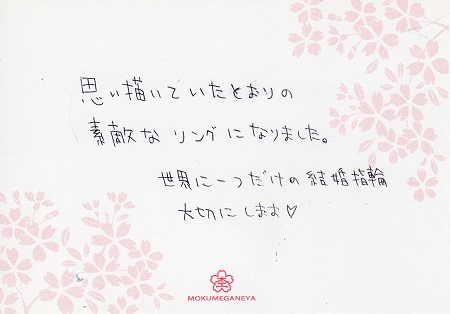 思い描いていたとおりの
素敵なリングになりました。
世界に一つだけの結婚指輪
大切にします♡
MOKUMEGANEYA